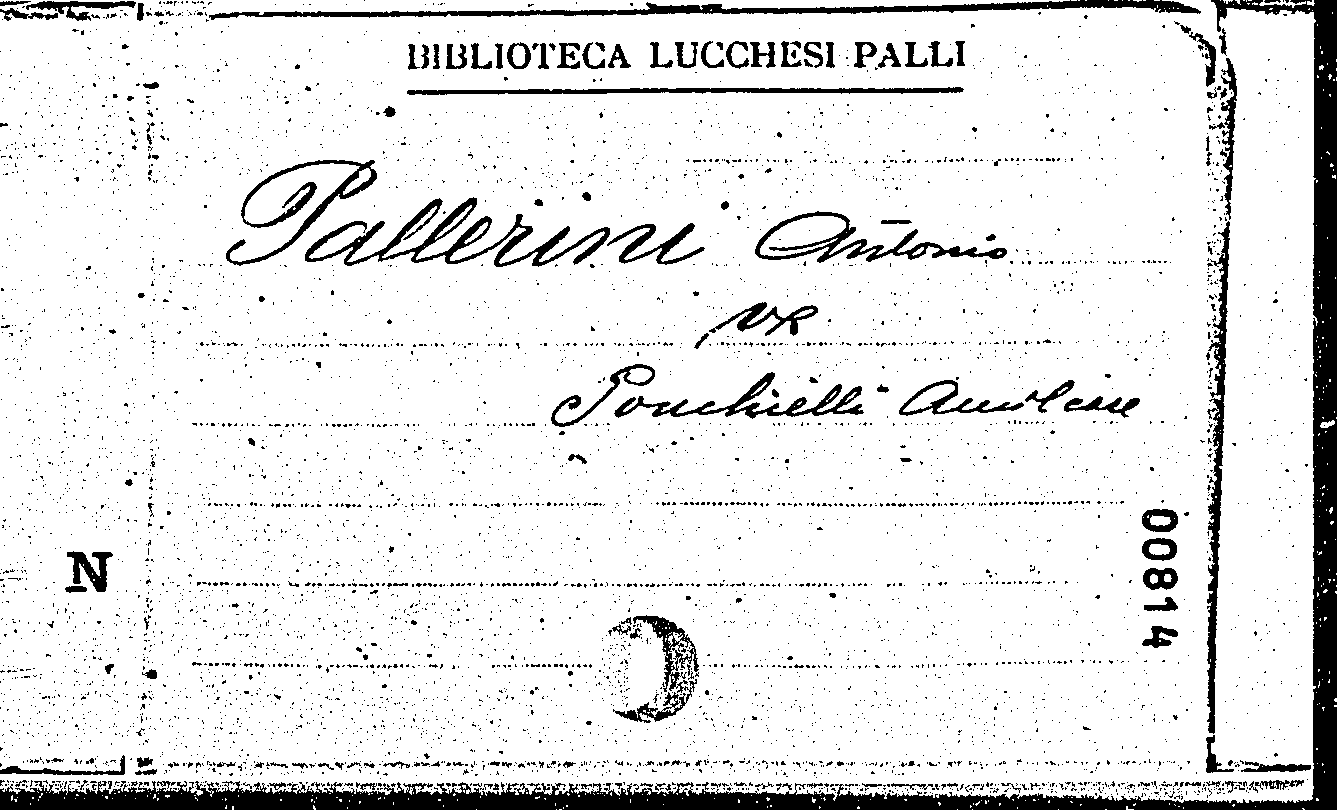 BIBLIOTECA LUCCHESI PALLI
Pallerini Antonio
Ponchielli Amilcare
N
00814